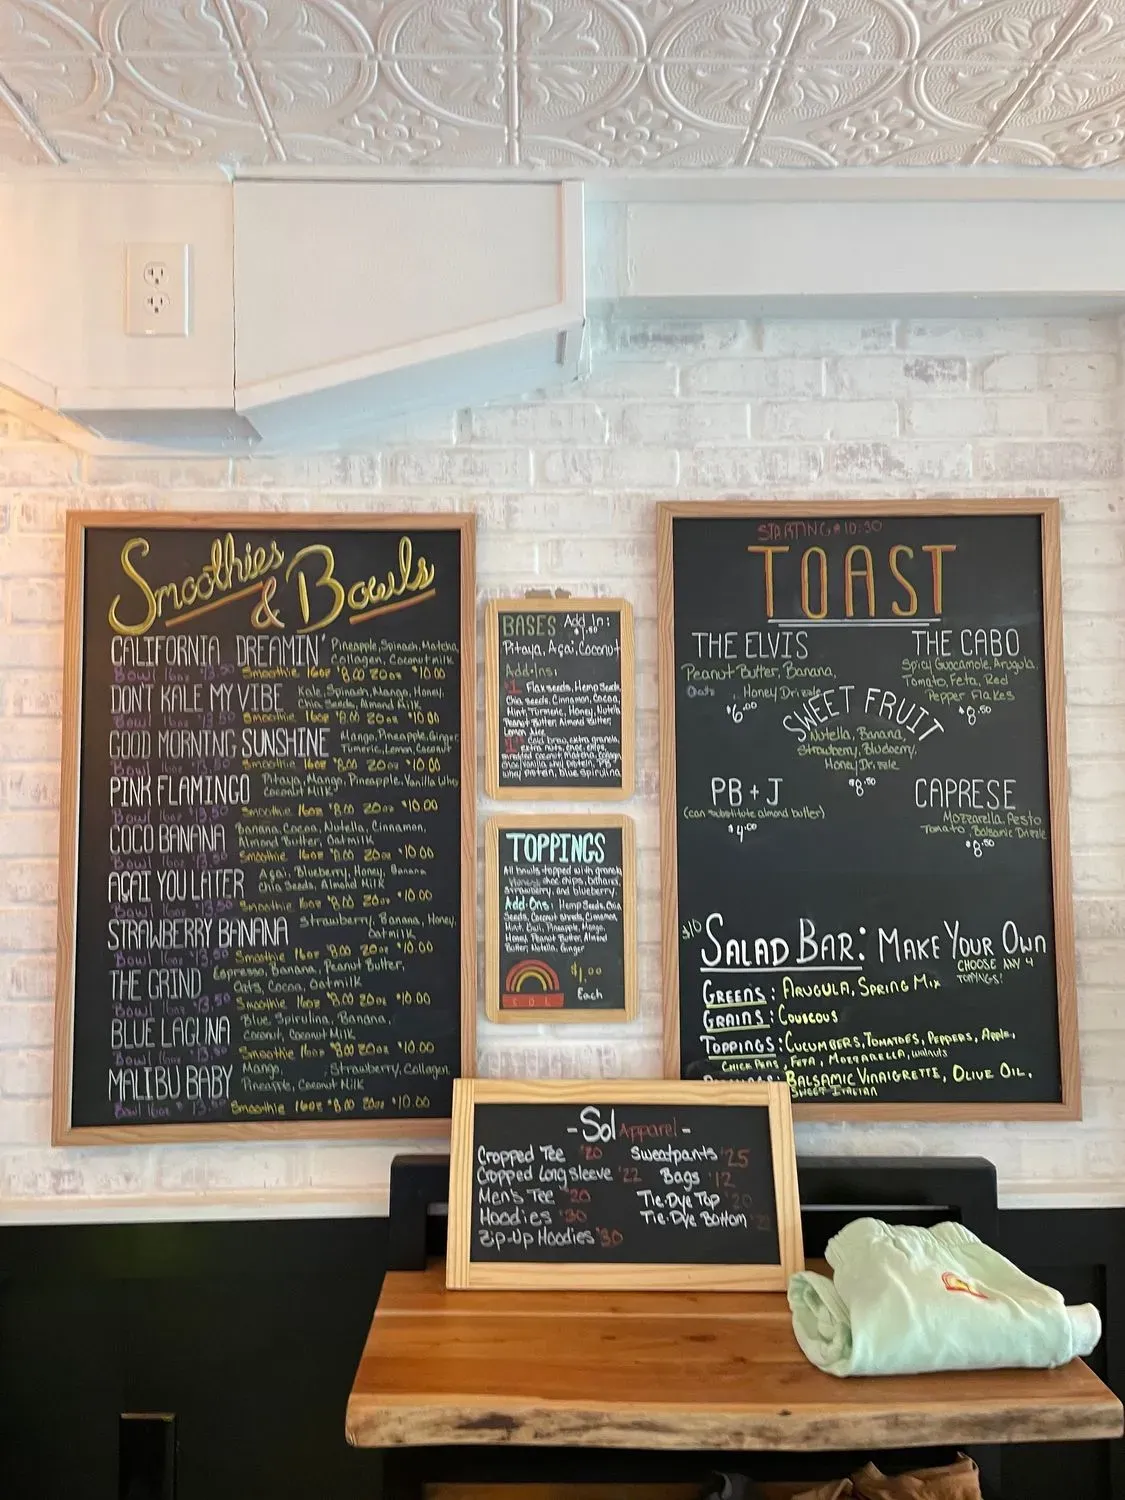 Smoothies
& Bowls
CALIFORNIA DREAMIN' Pineapple, Spinach, Matcha,
Collagen, Coconut milk
Bowl 16oz $13.50 Smoothie 16oz $8.00 20oz $10.00
DON'T KALE MY VIBE Kale, Spinach, Mango, Honey,
Chia Seeds, Almond Milk
Bowl 16oz $13.50 Smoothie 16oz $8.00 20oz $10.00
GOOD MORNING SUNSHINE Mango, Pineapple, Ginger,
Tumeric, Lemon, Coconut
Bowl 16oz $13.50 Smoothie 16oz $8.00 20oz $10.00
PINK FLAMINGO Pitaya, Mango, Pineapple, Vanilla Whey
Coconut Milk
Bowl 16oz $13.50 Smoothie 16oz $8.00 20oz $10.00
COCO BANANA Banana, Cocoa, Nutella, Cinnamon,
Almond Butter, Oatmilk
Bowl 16oz $13.50 Smoothie 16oz $8.00 20oz $10.00
AÇAI YOU LATER Açai, Blueberry, Honey, Banana
Chia Seeds, Almond Milk
Bowl 16oz $13.50 Smoothie 16oz $8.00 20oz $10.00
STRAWBERRY BANANA Strawberry, Banana, Honey,
Oatmilk
Bowl 16oz $13.50 Smoothie 16oz $8.00 20oz $10.00
THE GRIND Espresso, Banana, Peanut Butter,
Oats, Cocoa, Oatmilk
Bowl 16oz $13.50 Smoothie 16oz $8.00 20oz $10.00
BLUE LAGUNA Blue Spirulina, Banana,
Coconut, Coconut Milk
Bowl 16oz $13.50 Smoothie 16oz $8.00 20oz $10.00
MALIBU BABY Mango, , Strawberry, Collagen
Pineapple, Coconut Milk
Bowl 16oz $13.50 Smoothie 16oz $8.00 20oz $10.00
BASES Add In:
$1.50
Pitaya, Açai, Coconut
Add-Ins:
$1 Flaxseeds, Hemp Seeds,
Chia seeds, Cinnamon, Cocoa,
Mint, Turmeric, Honey, Nutella
Peanut Butter, Almond Butter,
Lemon Juice
Cold brew, extra granola,
extra nuts, choc. chips,
shredded coconut, matcha, collagen
choc/vanilla whey protein, PB
whey protein, blue spirulina
TOPPINGS
All bowls topped with granola,
Honey, choc chips, banana,
Strawberry, and blueberry.
Add-Ons: Hemp Seeds, Chia
Seeds, Coconut shreds, Cinnamon
Mint, Kiwi, Pineapple, Mango,
Honey, Peanut Butter, Almond
Butter, Nutella, Ginger
$1.00
Each
SOL
STARTING @ 10:30
TOAST
THE ELVIS
Peanut Butter, Banana,
Oats , Honey Drizzle
$6.00
THE CABO
Spicy Guacamole, Arugula,
Tomato, Feta, Red
Pepper Flakes
$8.50
SWEET FRUIT
Nutella, Banana,
Strawberry, Blueberry,
Honey Drizzle
$8.50
PB + J
(can substitute almond butter)
$4.00
CAPRESE
Mozzarella, Pesto
Tomato, Balsamic Drizzle
$8.50
$10 SALAD BAR: MAKE YOUR OWN
CHOOSE ANY 4
TOPPINGS!
GREENS: ARUGULA, SPRING MIX
GRAINS: COUSCOUS
TOPPINGS: CUCUMBERS, TOMATOES, PEPPERS, Apple,
CHICK PEAS, FETA, MOZZARELLA, walnuts
BALSAMIC VINAIGRETTE, OLIVE OIL,
SWEET ITALIAN
- Sol Apparel -
Cropped Tee $20
Cropped Longsleeve $22
Men's Tee $20
Hoodies $30
Zip-Up Hoodies $30
Sweatpants $25
Bags $12
Tie-Dye Top $20
Tie-Dye Bottom